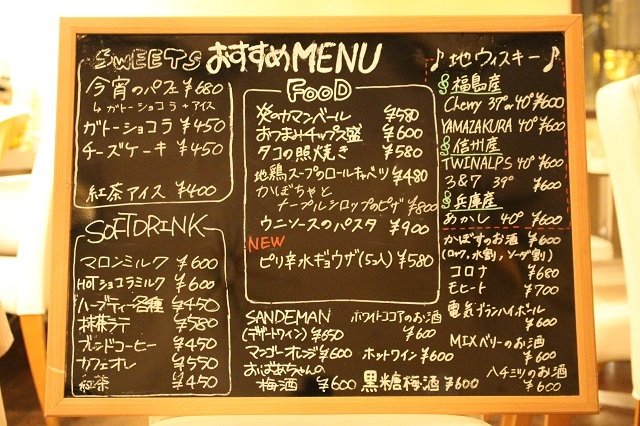 おすすめMENU
SWEETS
今宵のパフェ ¥680
ガトーショコラ+アイス
ガトーショコラ ¥450
チーズケーキ ¥450
紅茶アイス ¥400
SOFTDRINK
マロンミルク ¥600
HOTショコラミルク ¥600
ハーブティー各種 ¥450
抹茶ラテ ¥580
ブレンドコーヒー ¥450
カフェオレ ¥550
紅茶 ¥450
FOOD
炙りカマンベール ¥580
おつまみチップス盛 ¥600
タコの照焼き ¥580
地鶏スープのロールキャベツ ¥480
かぼちゃと
メープルシロップのピザ ¥800
ウニソースのパスタ ¥900
NEW
ピリ辛水ギョウザ(5コ入) ¥580
SANDEMAN
(デザートワイン) ¥650
マンゴーオレンジ ¥600
おばあちゃんの
梅酒 ¥600
ホワイトココアのお酒
¥600
ホットワイン ¥600
黒糖梅酒 ¥600
♪地ウィスキー♪
福島産
Cherry 37° or 40° ¥600
YAMAZAKURA 40° ¥600
信州産
TWINALPS 40° ¥600
3&7 39° ¥600
兵庫産
あかし 40° ¥600
かぼすのお酒 ¥600
(ロック,水割,ソーダ割)
コロナ ¥680
モヒート ¥700
電気ブランハイボール
¥600
MIXベリーのお酒
¥600
ハチミツのお酒
¥600